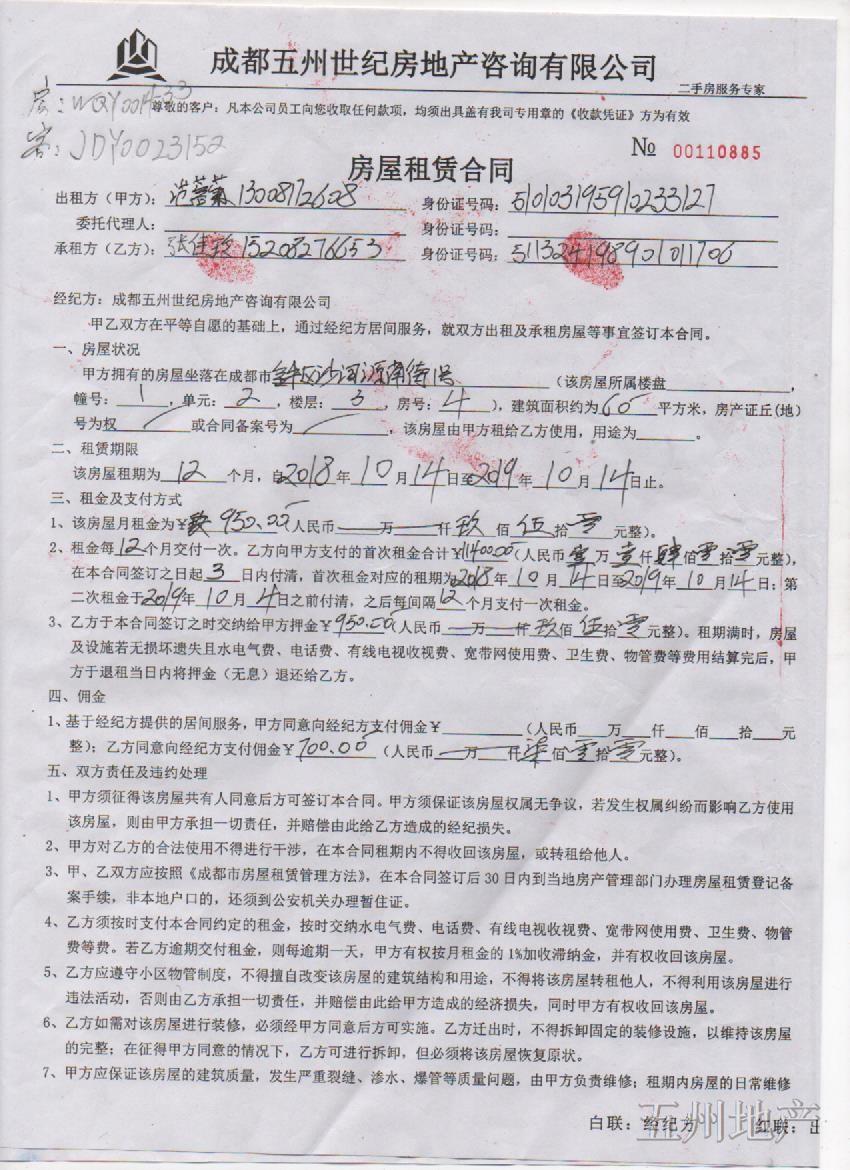 成都五州世纪房地产咨询有限公司
二手房服务专家
尊敬的客户：凡本公司员工向您收取任何款项，均须出具盖有我司专用章的《收款凭证》方为有效
客：JDY0023152
№ 00110885
房屋租赁合同
出租方（甲方）： 13008172608 身份证号码：510103195910233127
委托代理人： 身份证号码：
承租方（乙方）：张佳 15208276653 身份证号码：511324198901011706
经纪方：成都五州世纪房地产咨询有限公司
甲乙双方在平等自愿的基础上，通过经纪方居间服务，就双方出租及承租房屋等事宜签订本合同。
一、房屋状况
甲方拥有的房屋坐落在成都市金牛区沙河源南街1号（该房屋所属楼盘 ，
幢号：1，单元：2，楼层：3，房号：4），建筑面积约为60平方米，房产证丘(地)
号为权 或合同备案号为 ，该房屋由甲方租给乙方使用，用途为 。
二、租赁期限
该房屋租期为12个月，自2018年10月14日至2019年10月14日止。
三、租金及支付方式
1、该房屋月租金为￥950.00（人民币—万—仟玖佰伍拾零元整）。
2、租金每12个月交付一次。乙方向甲方支付的首次租金合计￥11400.00（人民币壹万壹仟肆佰零拾零元整），
在本合同签订之日起3日内付清，首次租金对应的租期为2018年10月14日至2019年10月14日；第
二次租金于2019年10月4日之前付清，之后每间隔12个月支付一次租金。
3、乙方于本合同签订之时交纳给甲方押金￥950.00（人民币—万—仟玖佰伍拾零元整）。租期满时，房屋
及设施若无损坏遗失且水电气费、电话费、有线电视收视费、宽带网使用费、卫生费、物管费等费用结算完后，甲
方于退租当日内将押金（无息）退还给乙方。
四、佣金
1、基于经纪方提供的居间服务，甲方同意向经纪方支付佣金￥ （人民币 万 仟 佰 拾 元
整）；乙方同意向经纪方支付佣金￥700.00（人民币—万—仟柒佰零拾零元整）。
五、双方责任及违约处理
1、甲方须征得该房屋共有人同意后方可签订本合同。甲方须保证该房屋权属无争议，若发生权属纠纷而影响乙方使用
该房屋，则由甲方承担一切责任，并赔偿由此给乙方造成的经纪损失。
2、甲方对乙方的合法使用不得进行干涉，在本合同租期内不得收回该房屋，或转租给他人。
3、甲、乙双方应按照《成都市房屋租赁管理方法》，在本合同签订后30日内到当地房产管理部门办理房屋租赁登记备
案手续，非本地户口的，还须到公安机关办理暂住证。
4、乙方须按时支付本合同约定的租金，按时交纳水电气费、电话费、有线电视收视费、宽带网使用费、卫生费、物管
费等费。若乙方逾期交付租金，则每逾期一天，甲方有权按月租金的1%加收滞纳金，并有权收回该房屋。
5、乙方应遵守小区物管制度，不得擅自改变该房屋的建筑结构和用途，不得将该房屋转租他人，不得利用该房屋进行
违法活动，否则由乙方承担一切责任，并赔偿由此给甲方造成的经济损失，同时甲方有权收回该房屋。
6、乙方如需对该房屋进行装修，必须经甲方同意后方可实施。乙方迁出时，不得拆卸固定的装修设施，以维持该房屋
的完整；在征得甲方同意的情况下，乙方可进行拆卸，但必须将该房屋恢复原状。
7、甲方应保证该房屋的建筑质量，发生严重裂缝、渗水、爆管等质量问题，由甲方负责维修；租期内房屋的日常维修
白联：经纪方 红联：出
五州地产